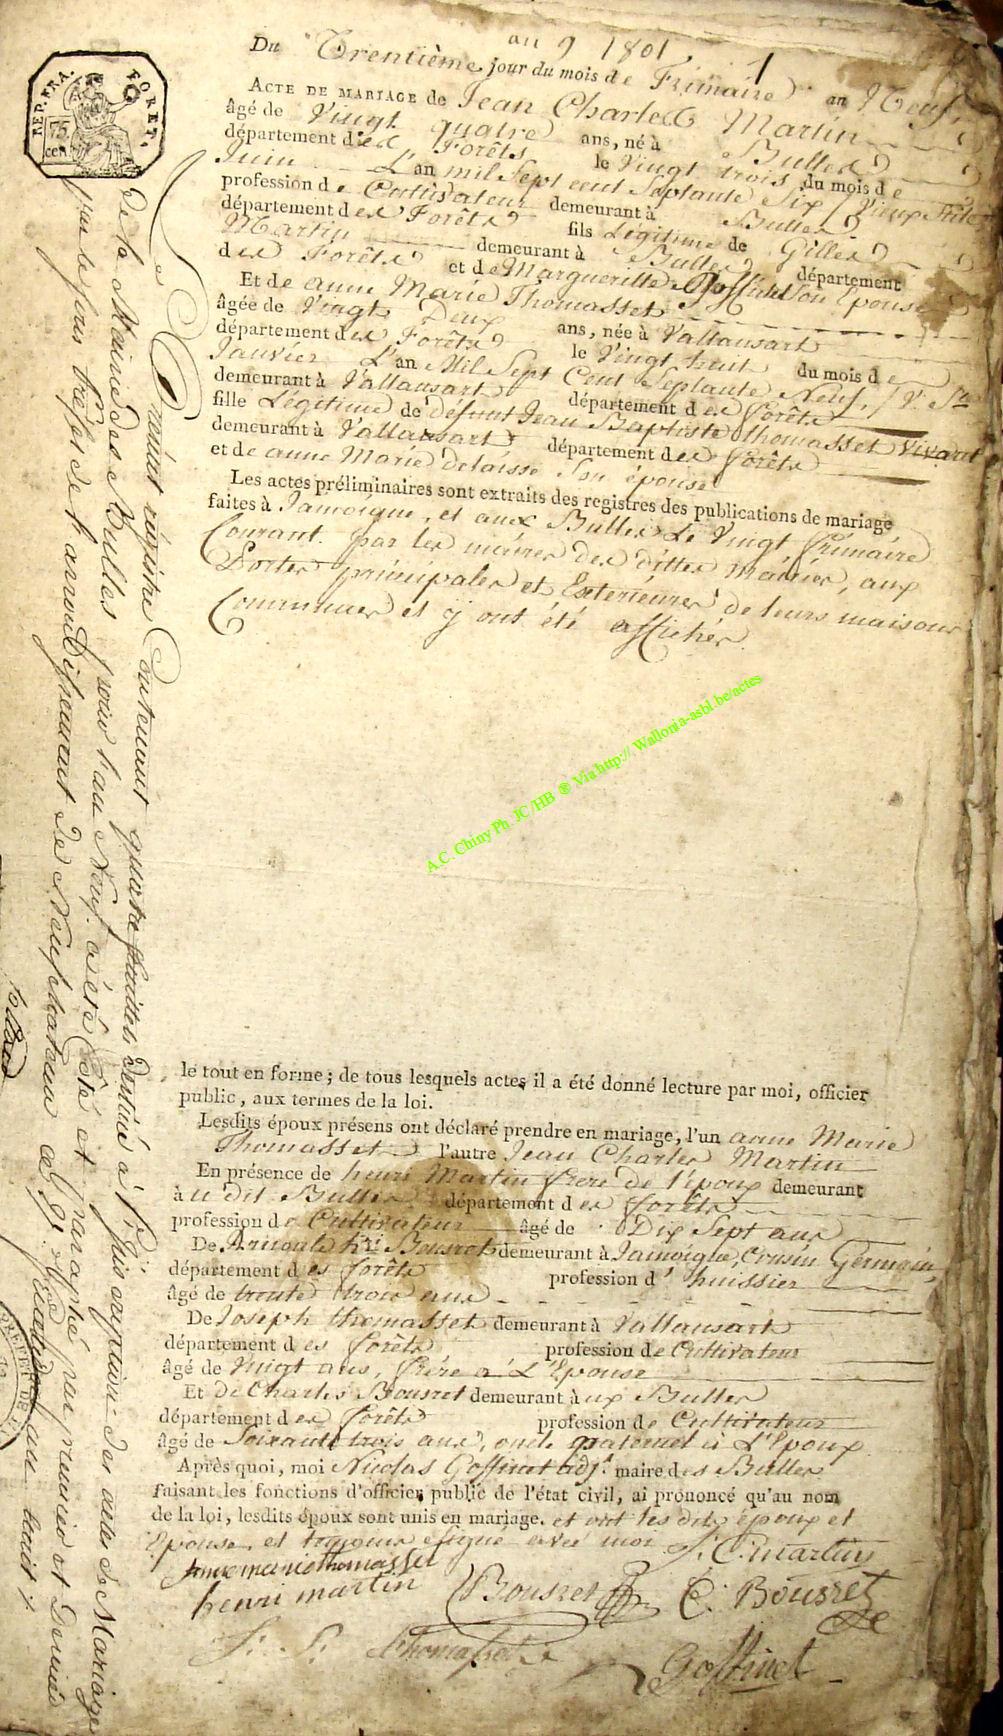 an 9 1801
1
Du Trentième jour du mois de Frimaire an Neuf,
ACTE DE MARIAGE de Jean Charles Martin
âgé de Vingt quatre ans, né à Bulles
département des Forêts le Vingt trois du mois de
Juin L'an mil Sept cent Septante Six / Vieux Stile
profession de Cultivateur demeurant à Bulles
département des Forêts fils Légitime de Gilles
Martin demeurant à Bulles département
des Forêts et de Margueritte Goffinet Son Epouse
Et de anne Marie Thomasset
âgée de Vingt Deux ans, née à Vallansart
département des Forêts le Vingt huit du mois de
Janvier L'an Mil Sept Cent Septante Neuf, / V. Ste
demeurant à Vallansart département des forêts
fille Légitime de défunt Jean Baptiste thomasset Vivant
demeurant à Vallansart département des forêts
et de anne Marie delaisse Son épouse
Les actes préliminaires sont extraits des registres des publications de mariage
faites à Jamoigne, et aux Bulles Le Vingt frimaire
Courant par les maires des dittes Mairies, aux
Portes principales et Exterieures de leurs maisons
Communes et y ont été affichés
A.C. Chiny Ph. JC/HB ® Via http://. Wallonia-asbl.be/actes
le tout en forme; de tous lesquels actes il a été donné lecture par moi, officier
public, aux termes de la loi.
Lesdits époux présens ont déclaré prendre en mariage, l'un anne Marie
Thomasset l'autre Jean Charles Martin
En présence de henri Martin frere de l'époux demeurant
à u dit Bulles département des forêts
profession de Cultivateur âgé de Dix Sept ans
De Arnould hri Bousret demeurant à Jamoigne, Cousin Germain,
département des forêts profession d' huissier
âgé de trente trois ans
De Joseph thomasset demeurant à Vallansart
département des forêts profession de Cultivateur
âgé de Vingt ans, frére a L'Epouse
Et de Charles Bousret demeurant à ux Bulles
département des forêts profession de Cultivateur
âgé de Soixante trois ans, oncle maternel à L'Epoux
Après quoi, moi Nicolas Goffinet adj.t maire des Bulles
faisant les fonctions d'officier public de l'état civil, ai prononcé qu'au nom
de la loi, lesdits époux sont unis en mariage. et ont les dits époux et
Epouse et temoins signé avec moi J. C. martin
anne marie thomasset
henri martin Bousret C. Bousret
J. thomasset
Goffinet
REP. FRA. FORETS.
75 cen.
Le present registre Contenant quatre feuilles destiné à l'inscription des actes de Mariage
de la Mairie des Bulles pour l'an Neuf a été Coté et Paraphé par premier et dernier
par le sous Préfet de l'arrondissement de Neufchateau le an huit